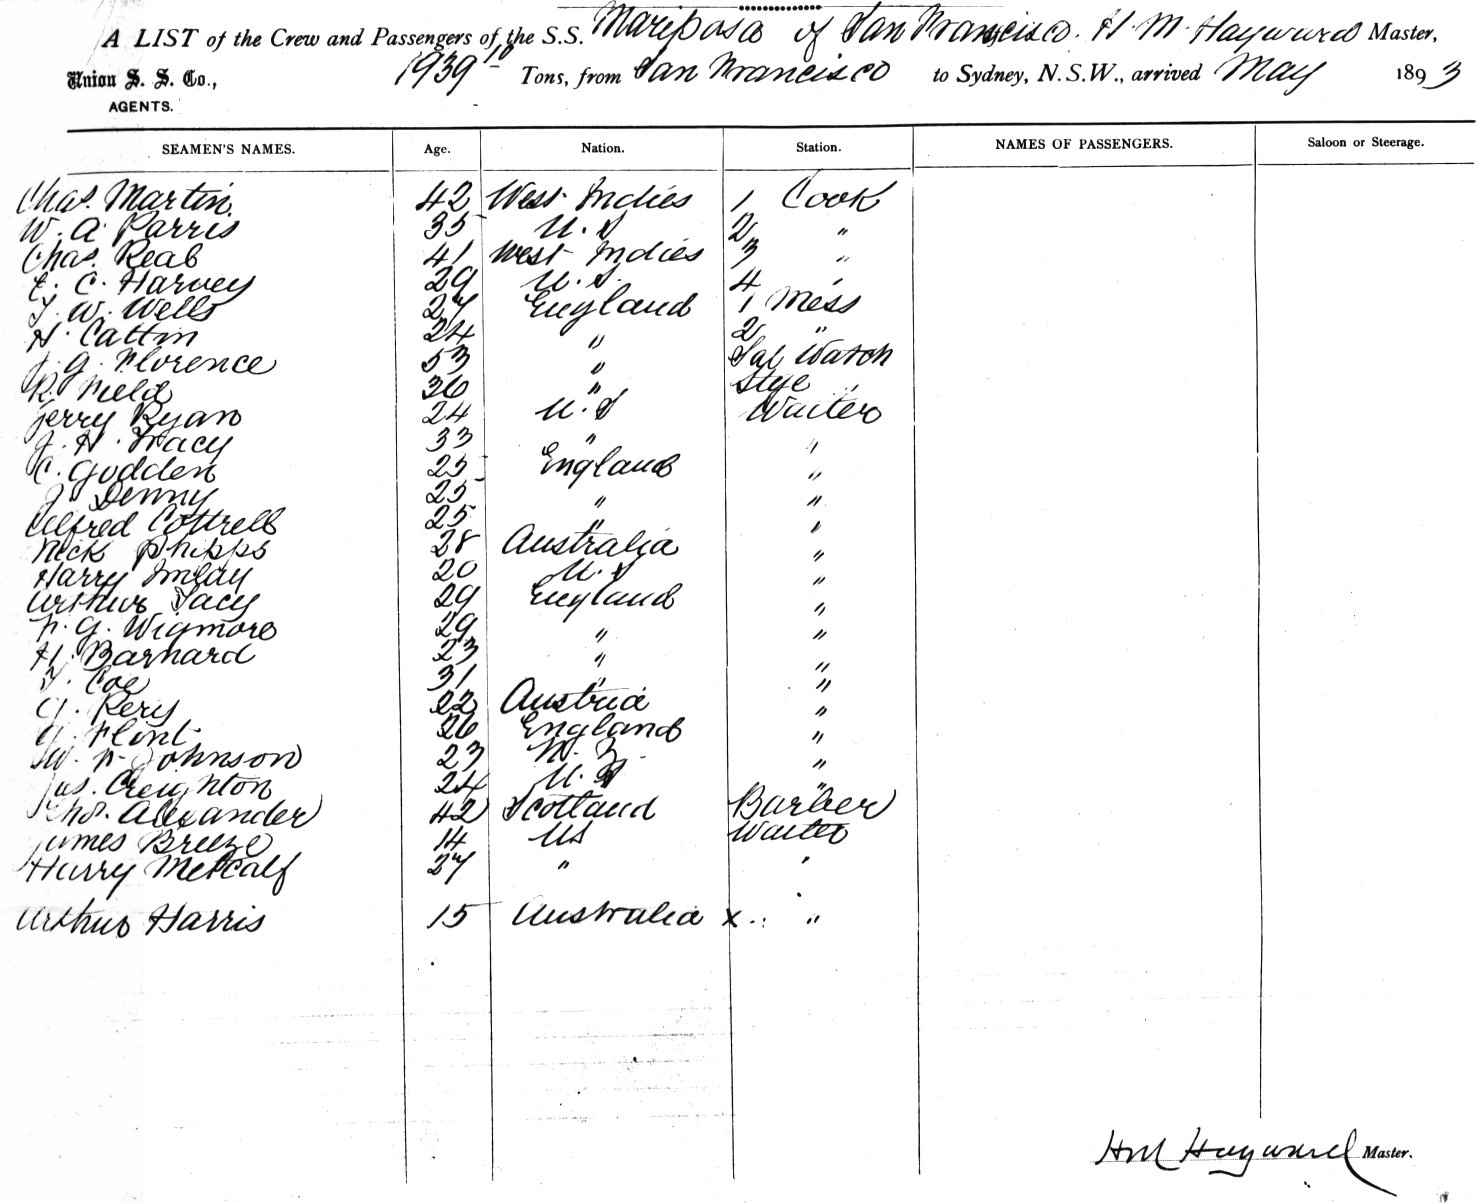 A LIST of the Crew and Passengers of the S.S. Mariposa of San Francisco. H. M. Hayward Master,
Union S. S. Co., 1939 10 Tons, from San Francisco to Sydney, N.S.W., arrived May 1893
AGENTS.
SEAMEN'S NAMES. Age. Nation. Station. NAMES OF PASSENGERS. Saloon or Steerage.
Chas. Martin. 42 West Indies 1 Cook
W. A. Parris 35 U. S 2 "
Chas. Reab 41 West Indies 3 "
E. C. Harvey 29 U. S. 4 "
T. W. Wells 27 England 1 Mess
H. Cattin 24 " 2 "
J. G. Florence 53 " Sal Watch
R. Field 36 " Stge "
Jerry Ryan 24 U. S Waiter
J. H. Tracy 33 " "
C. Godden 25 England "
J. Denny 25 " "
Alfred Cottrell 25 " "
Nick Phipps 28 Australia "
Harry Imlay 20 U. S "
Arthur Tacy 29 England "
F. G. Wigmore 29 " "
H. Barnard 23 " "
T. Coe 31 " "
G. Pery 22 Austria "
G. Flint 26 England "
W. F. Johnson 23 N. Z. "
Jas. Creighton 24 U. S "
Chs. Alexander 42 Scotland Barber
James Breeze 14 US Waiter
Harry Metcalf 37 " "
Arthur Harris 15 Australia x "
HM Hayward Master.